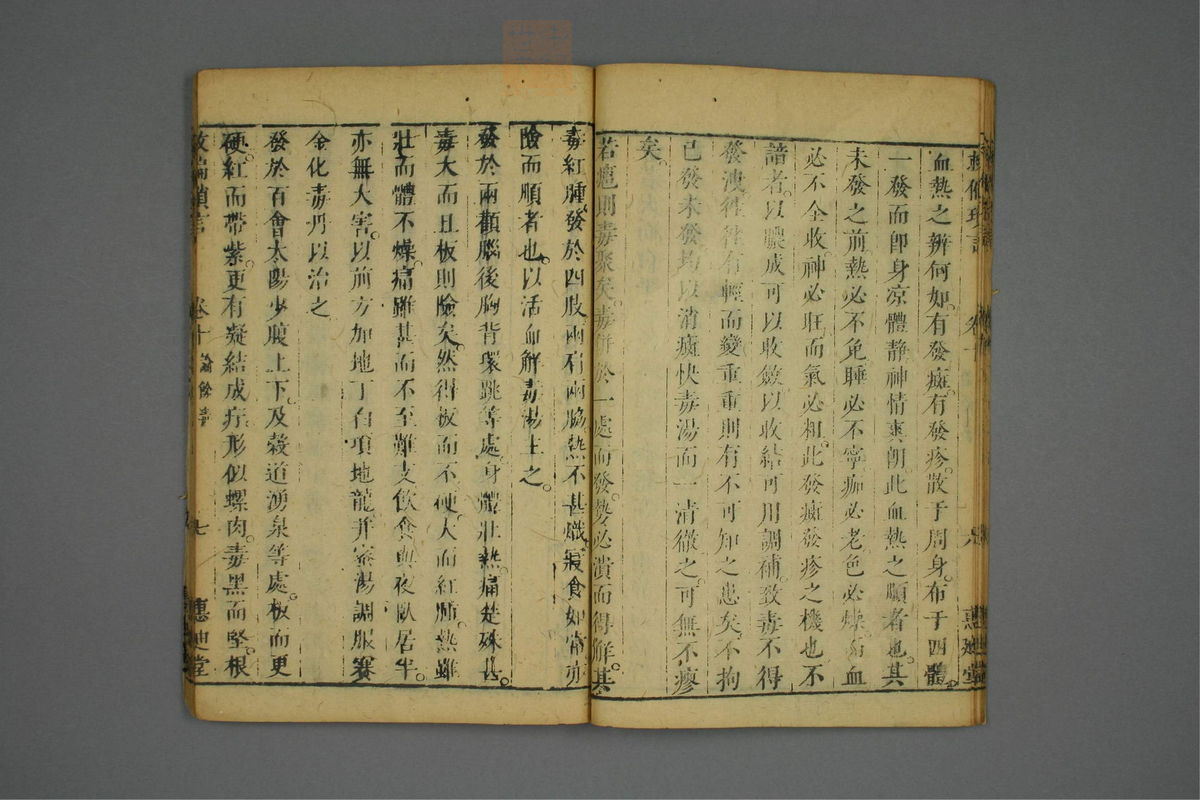 血熱之辨何如有發癍有發疹散于周身布于四體
一發而卽身凉體静神情爽朗此血熱之順者也其
未發之前熱必不免睡必不寧痂必老色必燥而血
必不全收神必旺而氣必粗此發癍發疹之機也不
諳者以膿成可以收斂以收結可用調補致毒不得
發洩往往有輕而變重重則有不可知之患矣不拘
已發未發均以消癍快毒湯而一清徹之可無不瘳
矣
若癰則毒聚矣毒併於一處而發勢必潰而得解其
毒紅腫發於四肢兩肩兩脇熱不甚熾寢食如常
險而順者也以活血解毒湯主之
發於兩顴腦後胸背環跳等處身體壯熱痛楚殊甚
毒大而且板則險矣然得板而不硬大而紅腫熱雖
壯而體不燥痛雖甚而不至難支飲食與夜臥居半
亦無大害以前方加地丁白項地龍并蜜湯調服賽
金化毒丹以治之
發於百會太陽少腹上下及穀道湧泉等處板而更
硬紅而帶紫更有凝結成疔形似螺肉毒黑而堅根
救偏瑣言 卷十 論餘毒 七 惠迪堂